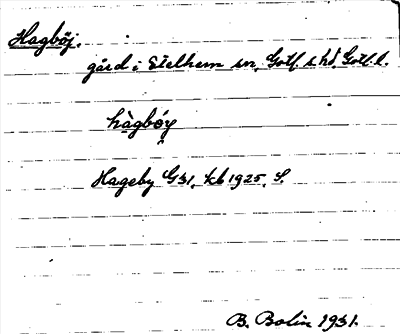 Hagböj.
gård i Etelhem sn, Gotl. s. hd, Gotl. l.
hàgbǫ́y
Hageby G31, kb 1925, S.
B. Bolin 1931.